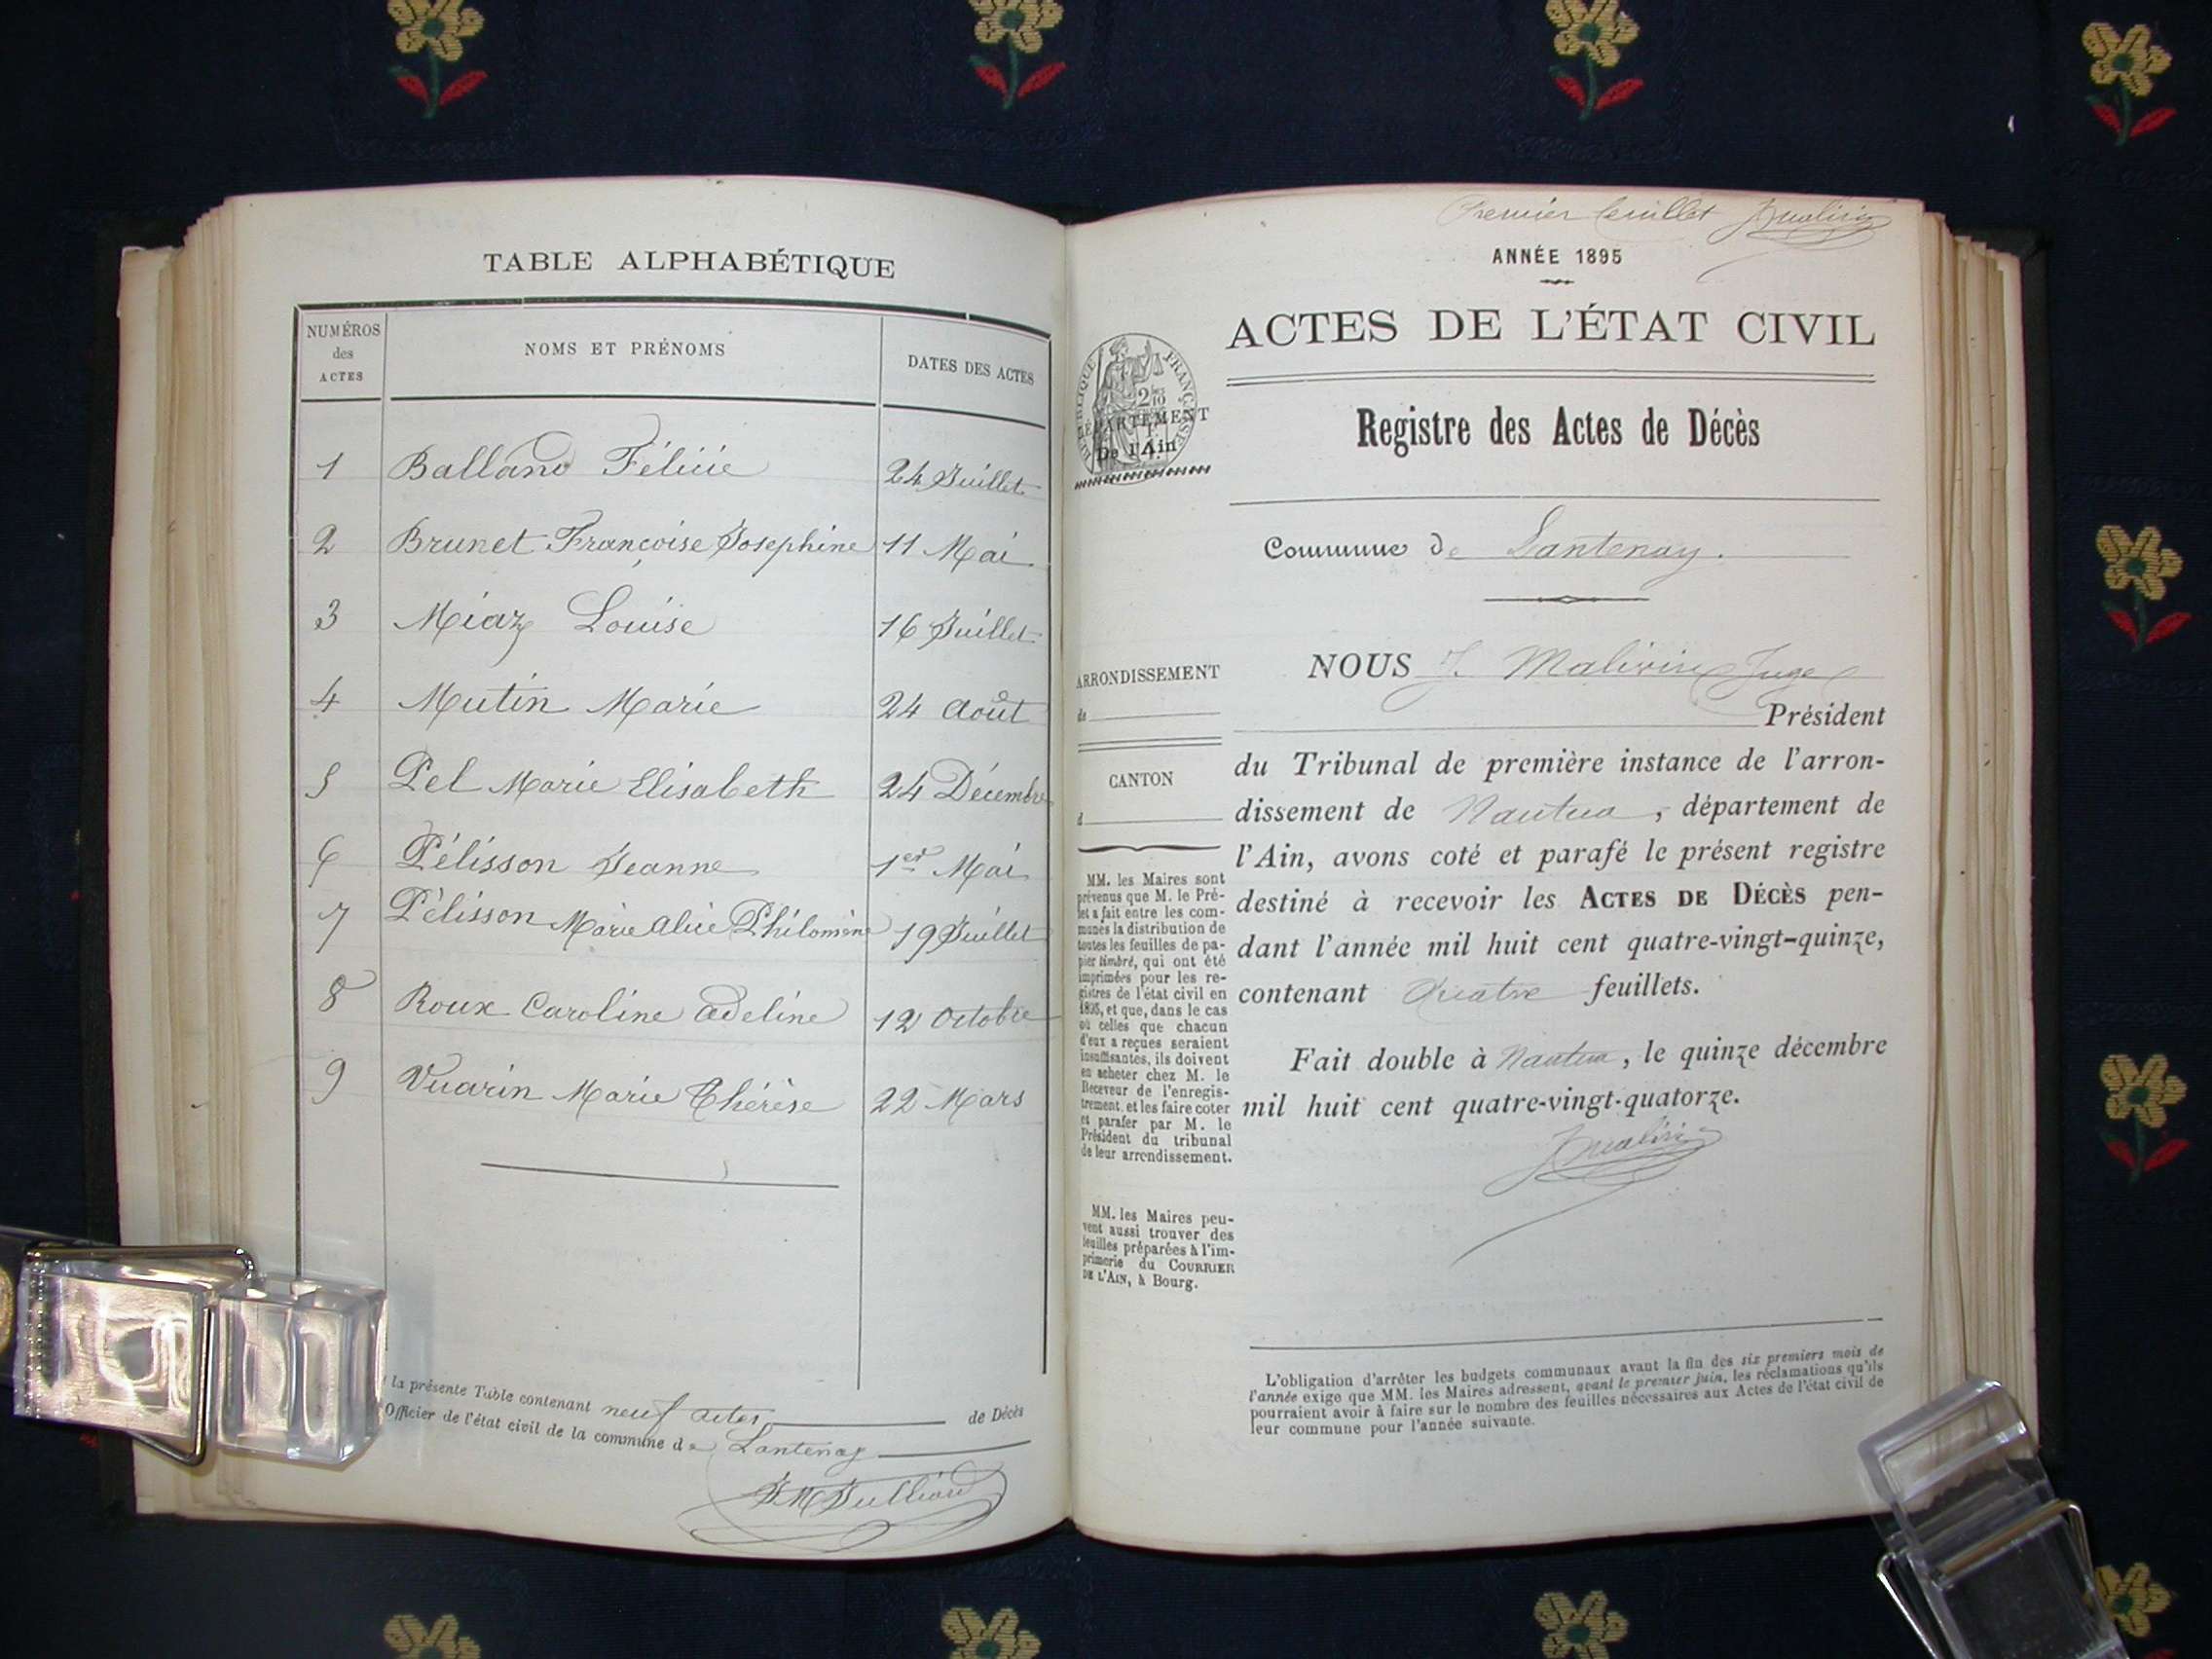 TABLE ALPHABÉTIQUE
NUMÉROS des ACTES
NOMS ET PRÉNOMS
DATES DES ACTES
1 Balland Félicie 24 Juillet
2 Brunet Françoise Josephine 11 Mai
3 Miaz Louise 16 Juillet
4 Mutin Marie 24 Août
5 Pel Marie Elisabeth 24 Décembre
6 Pélisson Jeanne 1er Mai
7 Pélisson Marie Alice Philomène 19 Juillet
8 Roux Caroline Adeline 12 Octobre
9 Vuarin Marie Thérèse 22 Mars
la présente Table contenant neuf actes de Décès
Officier de l'état civil de la commune de Lantenay
Premier feuillet
ANNÉE 1895
ACTES DE L'ÉTAT CIVIL
RÉPUBLIQUE FRANÇAISE
DÉPARTEMENT
De l'Ain
Registre des Actes de Décès
Commune de Lantenay.
ARRONDISSEMENT
de
CANTON
d
MM. les Maires sont
prévenus que M. le Pré-
fet a fait entre les com-
munes la distribution de
toutes les feuilles de pa-
pier timbré, qui ont été
imprimées pour les re-
gistres de l'état civil en
1895, et que, dans le cas
où celles que chacun
d'eux a reçues seraient
insuffisantes, ils doivent
en acheter chez M. le
Receveur de l'enregis-
trement, et les faire coter
et parafer par M. le
Président du tribunal
de leur arrondissement.
MM. les Maires peu-
vent aussi trouver des
feuilles préparées à l'im-
primerie du COURRIER
DE L'AIN, à Bourg.
NOUS J. Malivin Juge
Président
du Tribunal de première instance de l'arron-
dissement de Nantua, département de
l'Ain, avons coté et parafé le présent registre
destiné à recevoir les ACTES DE DÉCÈS pen-
dant l'année mil huit cent quatre-vingt-quinze,
contenant Quatre feuillets.
Fait double à Nantua, le quinze décembre
mil huit cent quatre-vingt-quatorze.
L'obligation d'arrêter les budgets communaux avant la fin des six premiers mois de
l'année exige que MM. les Maires adressent, avant le premier juin, les réclamations qu'ils
pourraient avoir à faire sur le nombre des feuilles nécessaires aux Actes de l'état civil de
leur commune pour l'année suivante.